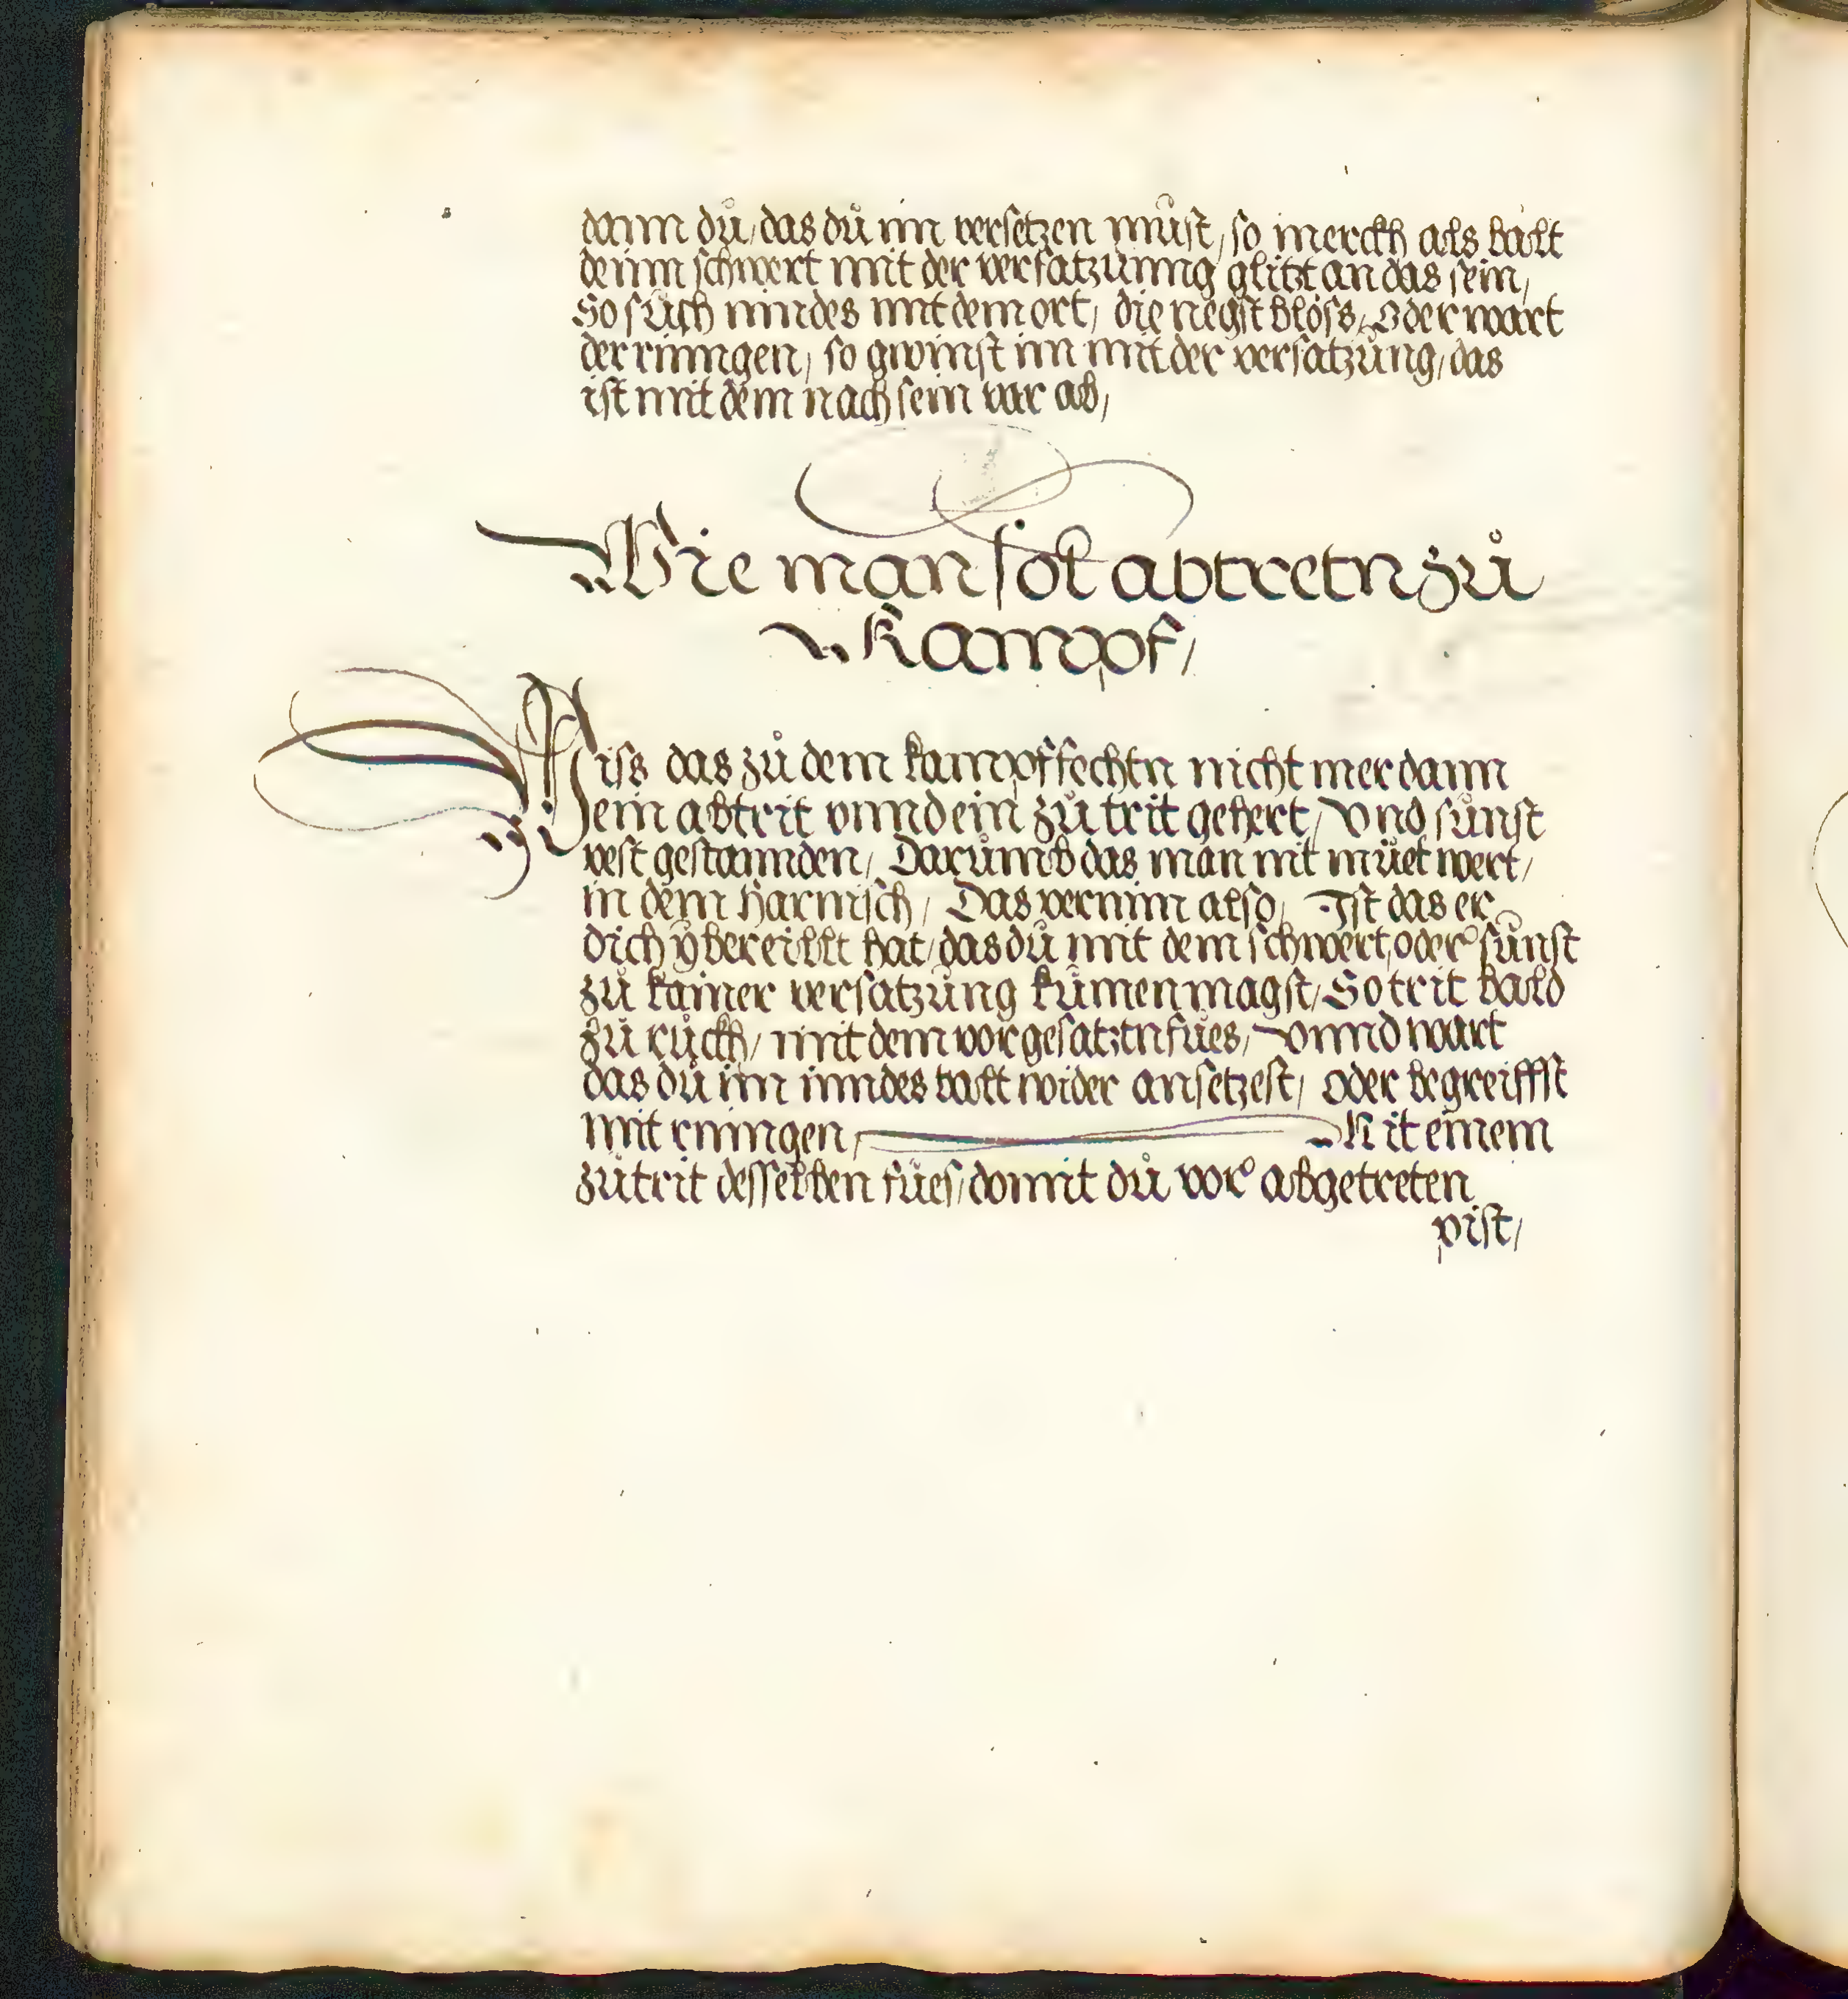 dann dů, das dů im versetzen můst, so merckh als balt
denn schwert mit der versatzunng glitzt an das sein,
So sůch inndes mit dem ort, die negst blöss, Oder wart
der rinngen, so gwinst im mit der versatzůng, das
ist mit dem nach sein var ab,
Wie man sol abtretn zů
Kampf,
Wiss das zů dem kampffechtn nicht mer dann
ein abtrit vnnd ein zůtrit gehert, Vnd sůnst
vest gestannden, Darůmb das man nit müet wert,
in dem harnisch, Das vernim also, Ist das er
dich ÿbereillt hat, das dů mit dem schwert, oder sůnst
zů kainer versatzůng kůmen magst, So trit bald
zů růckh, mit dem vorgesatztn fůes, Vnnd wart
das dů im inndes balt wider ansetzest, oder begreiffst
mit rinngen, Mit einem
zůtrit desselben fůes, domit dů vor abgetreten
pist,